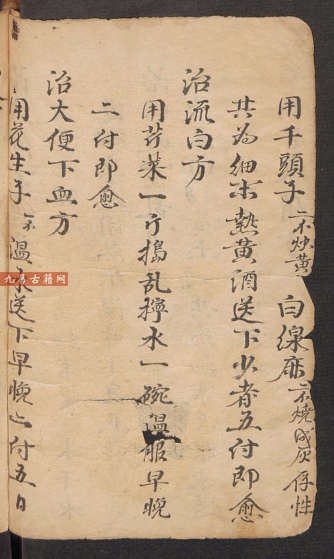 用千頭子一不炒黄 白線麻一不燒成灰存性
共為細末熱黄酒送下少者五付即愈
治流白方
用芹菜一斤搗乱擰水一碗温服早晚
二付即愈
治大便下血方
用花生子一不温水送下早晚二付五日
九万古籍网